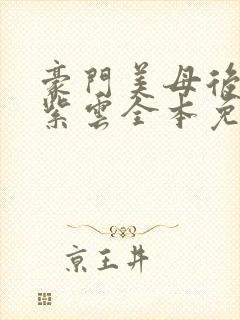 豪門美母後
紫雲全本免
京王井